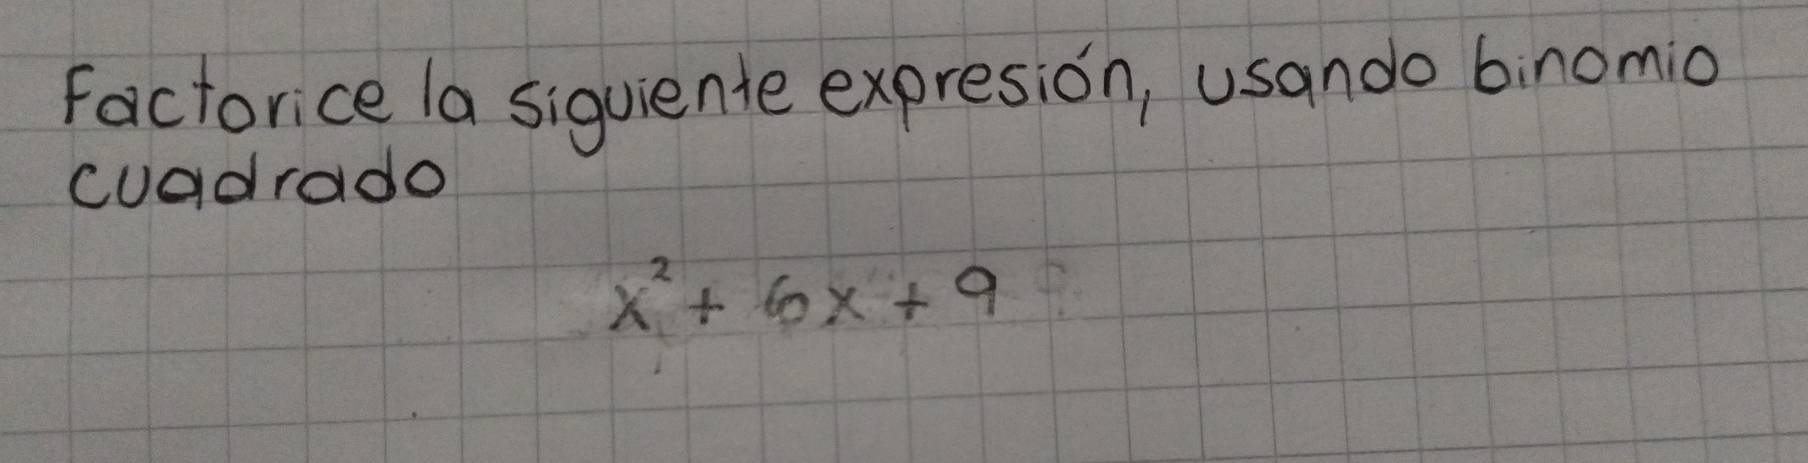 Factorice la siguiente expresión, usando binomio
cuadrado
x² + 6x + 9